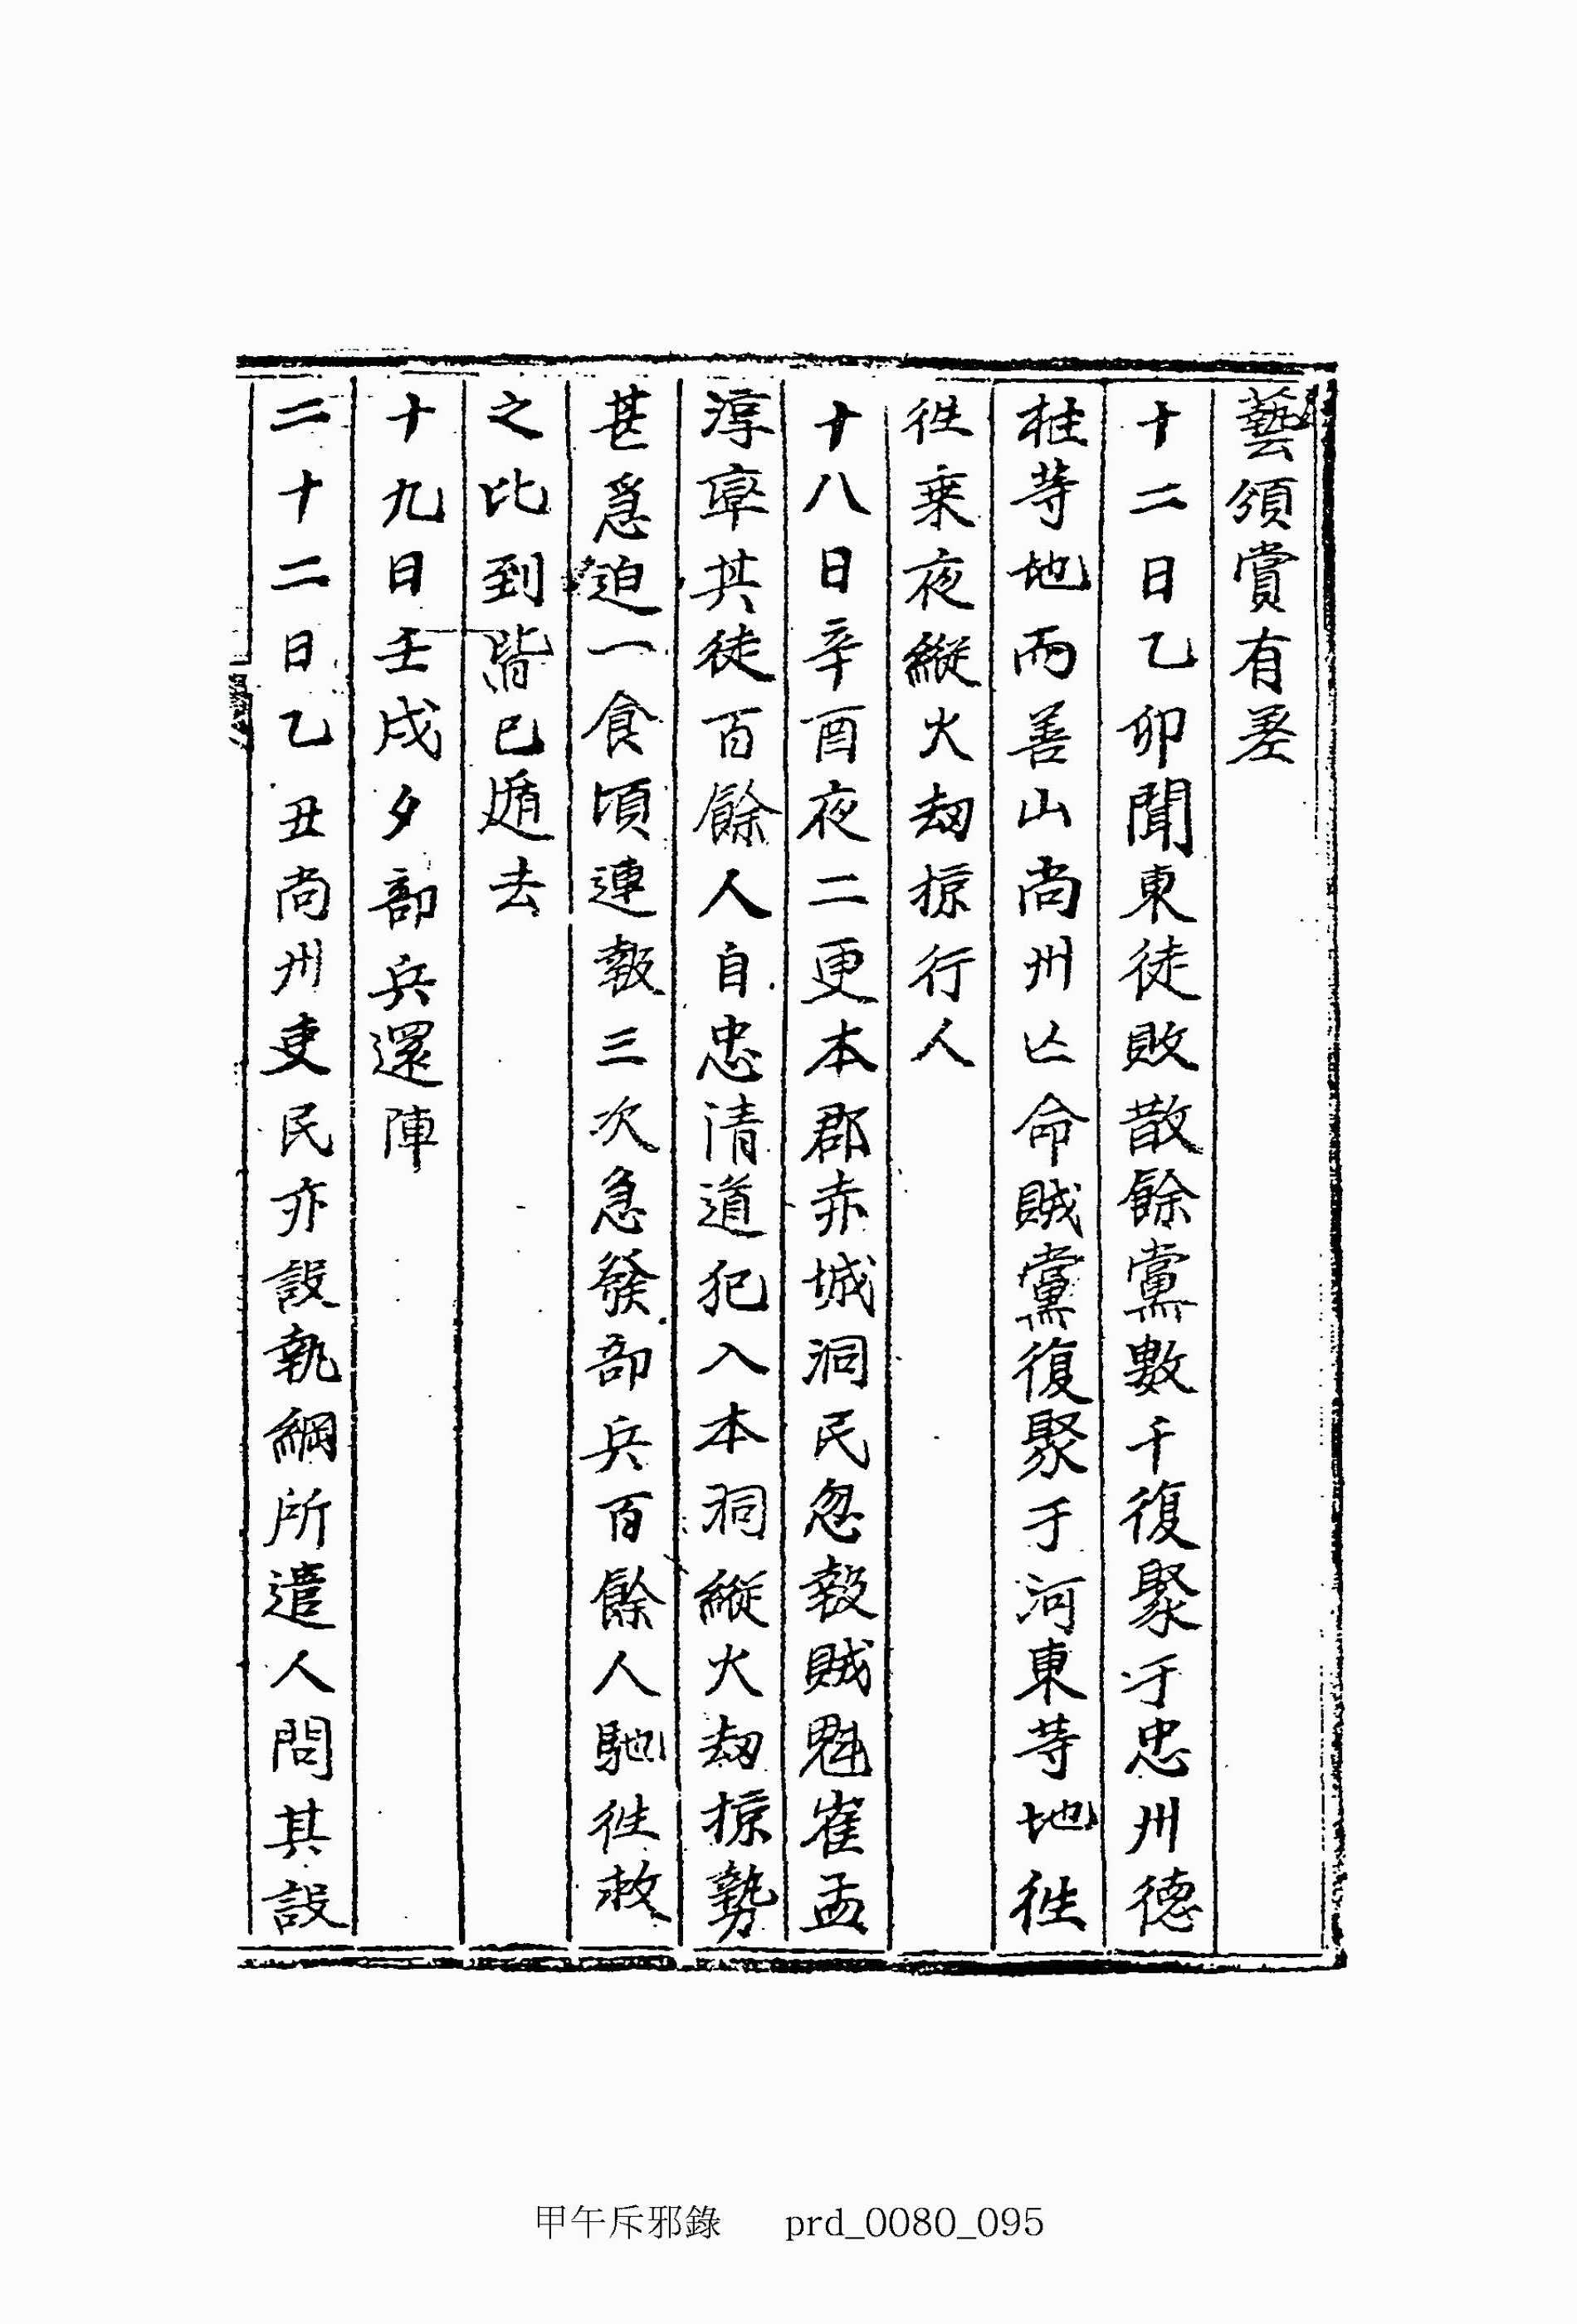 藝頒賞有差
十二日乙卯聞東徒敗散餘黨數千復聚于忠州德
桂等地而善山尙州亡命賊黨復聚于河東等地往
往乘夜縱火刼掠行人
十八日辛酉夜二更本郡赤城洞民忽報賊魁崔孟
淳率其徒百餘人自忠清道犯入本洞縱火刼掠勢
甚急迫一食頃連報三次急發部兵百餘人馳往救
之比到皆已遁去
十九日壬戌夕部兵還陣
二十二日乙丑尙州吏民亦設執綱所遣人問其設
甲午斥邪錄 prd_0080_095